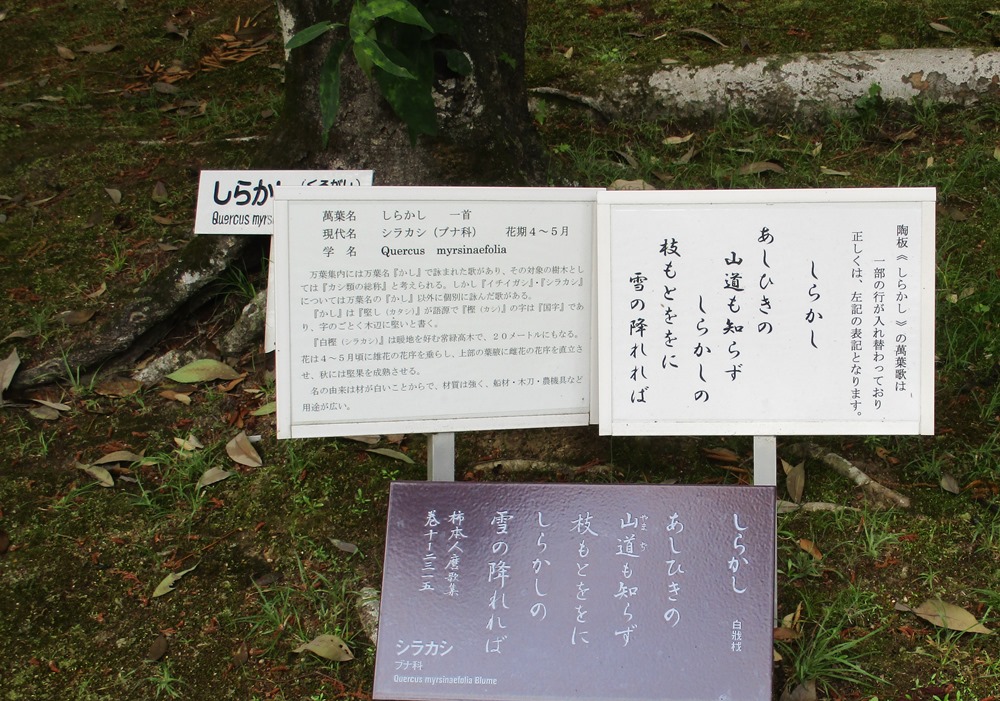 しらかし（くろがい）
Quercus myrs
萬葉名　しらかし　一首
現代名　シラカシ（ブナ科）　花期４～５月
学　名　Quercus myrsinaefolia
万葉集内には万葉名『かし』で詠まれた歌があり、その対象の樹木とし
ては『カシ類の総称』と考えられる。しかし『イチイガシ』・『シラカシ』
については万葉名の『かし』以外に個別に詠んだ歌がある。
『かし』は『堅し（カタシ）』が語源で『樫（カシ）』の字は『国字』であ
り、字のごとく木辺に堅いと書く。
『白樫（シラカシ）』は暖地を好む常緑高木で、２０メートルにもなる。
花は４～５月頃に雄花の花序を垂らし、上部の葉腋に雌花の花序を直立さ
せ、秋には堅果を成熟させる。
名の由来は材が白いことからで、材質は強く、船材・木刀・農機具など
用途が広い。
陶板《しらかし》の萬葉歌は
一部の行が入れ替わっており
正しくは、左記の表記となります。
しらかし
あしひきの
山道も知らず
しらかしの
枝もとををに
雪の降れれば
しらかし　白戕㦯
あしひきの
山道も知らず
やまぢ
枝もとををに
しらかしの
雪の降れれば
柿本人麿歌集
巻十ー二三一五
シラカシ
ブナ科
Quercus myrsinaefolia Blume